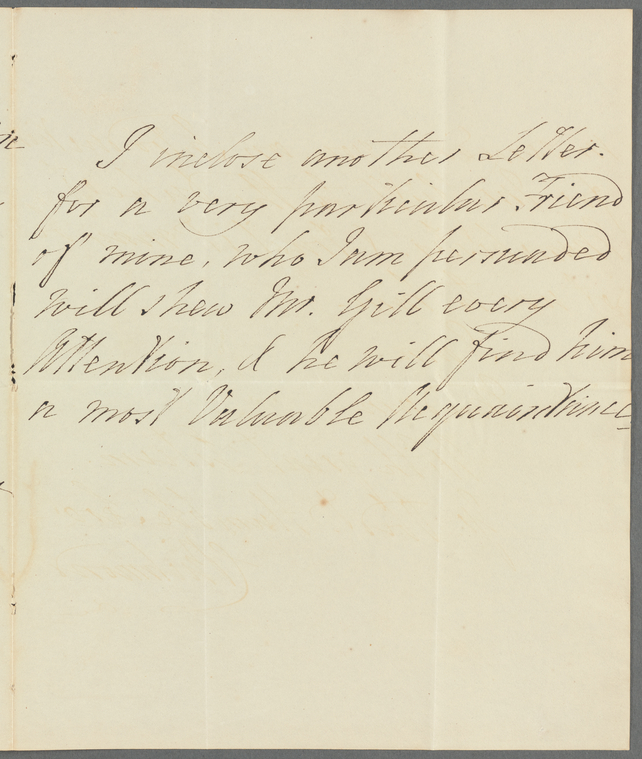 I inclose another Letter.
for a very particular Friend
of mine, who I am persuaded
will shew Mr. Gill every
Attention, & he will find him
a most Valuable Acquaintance